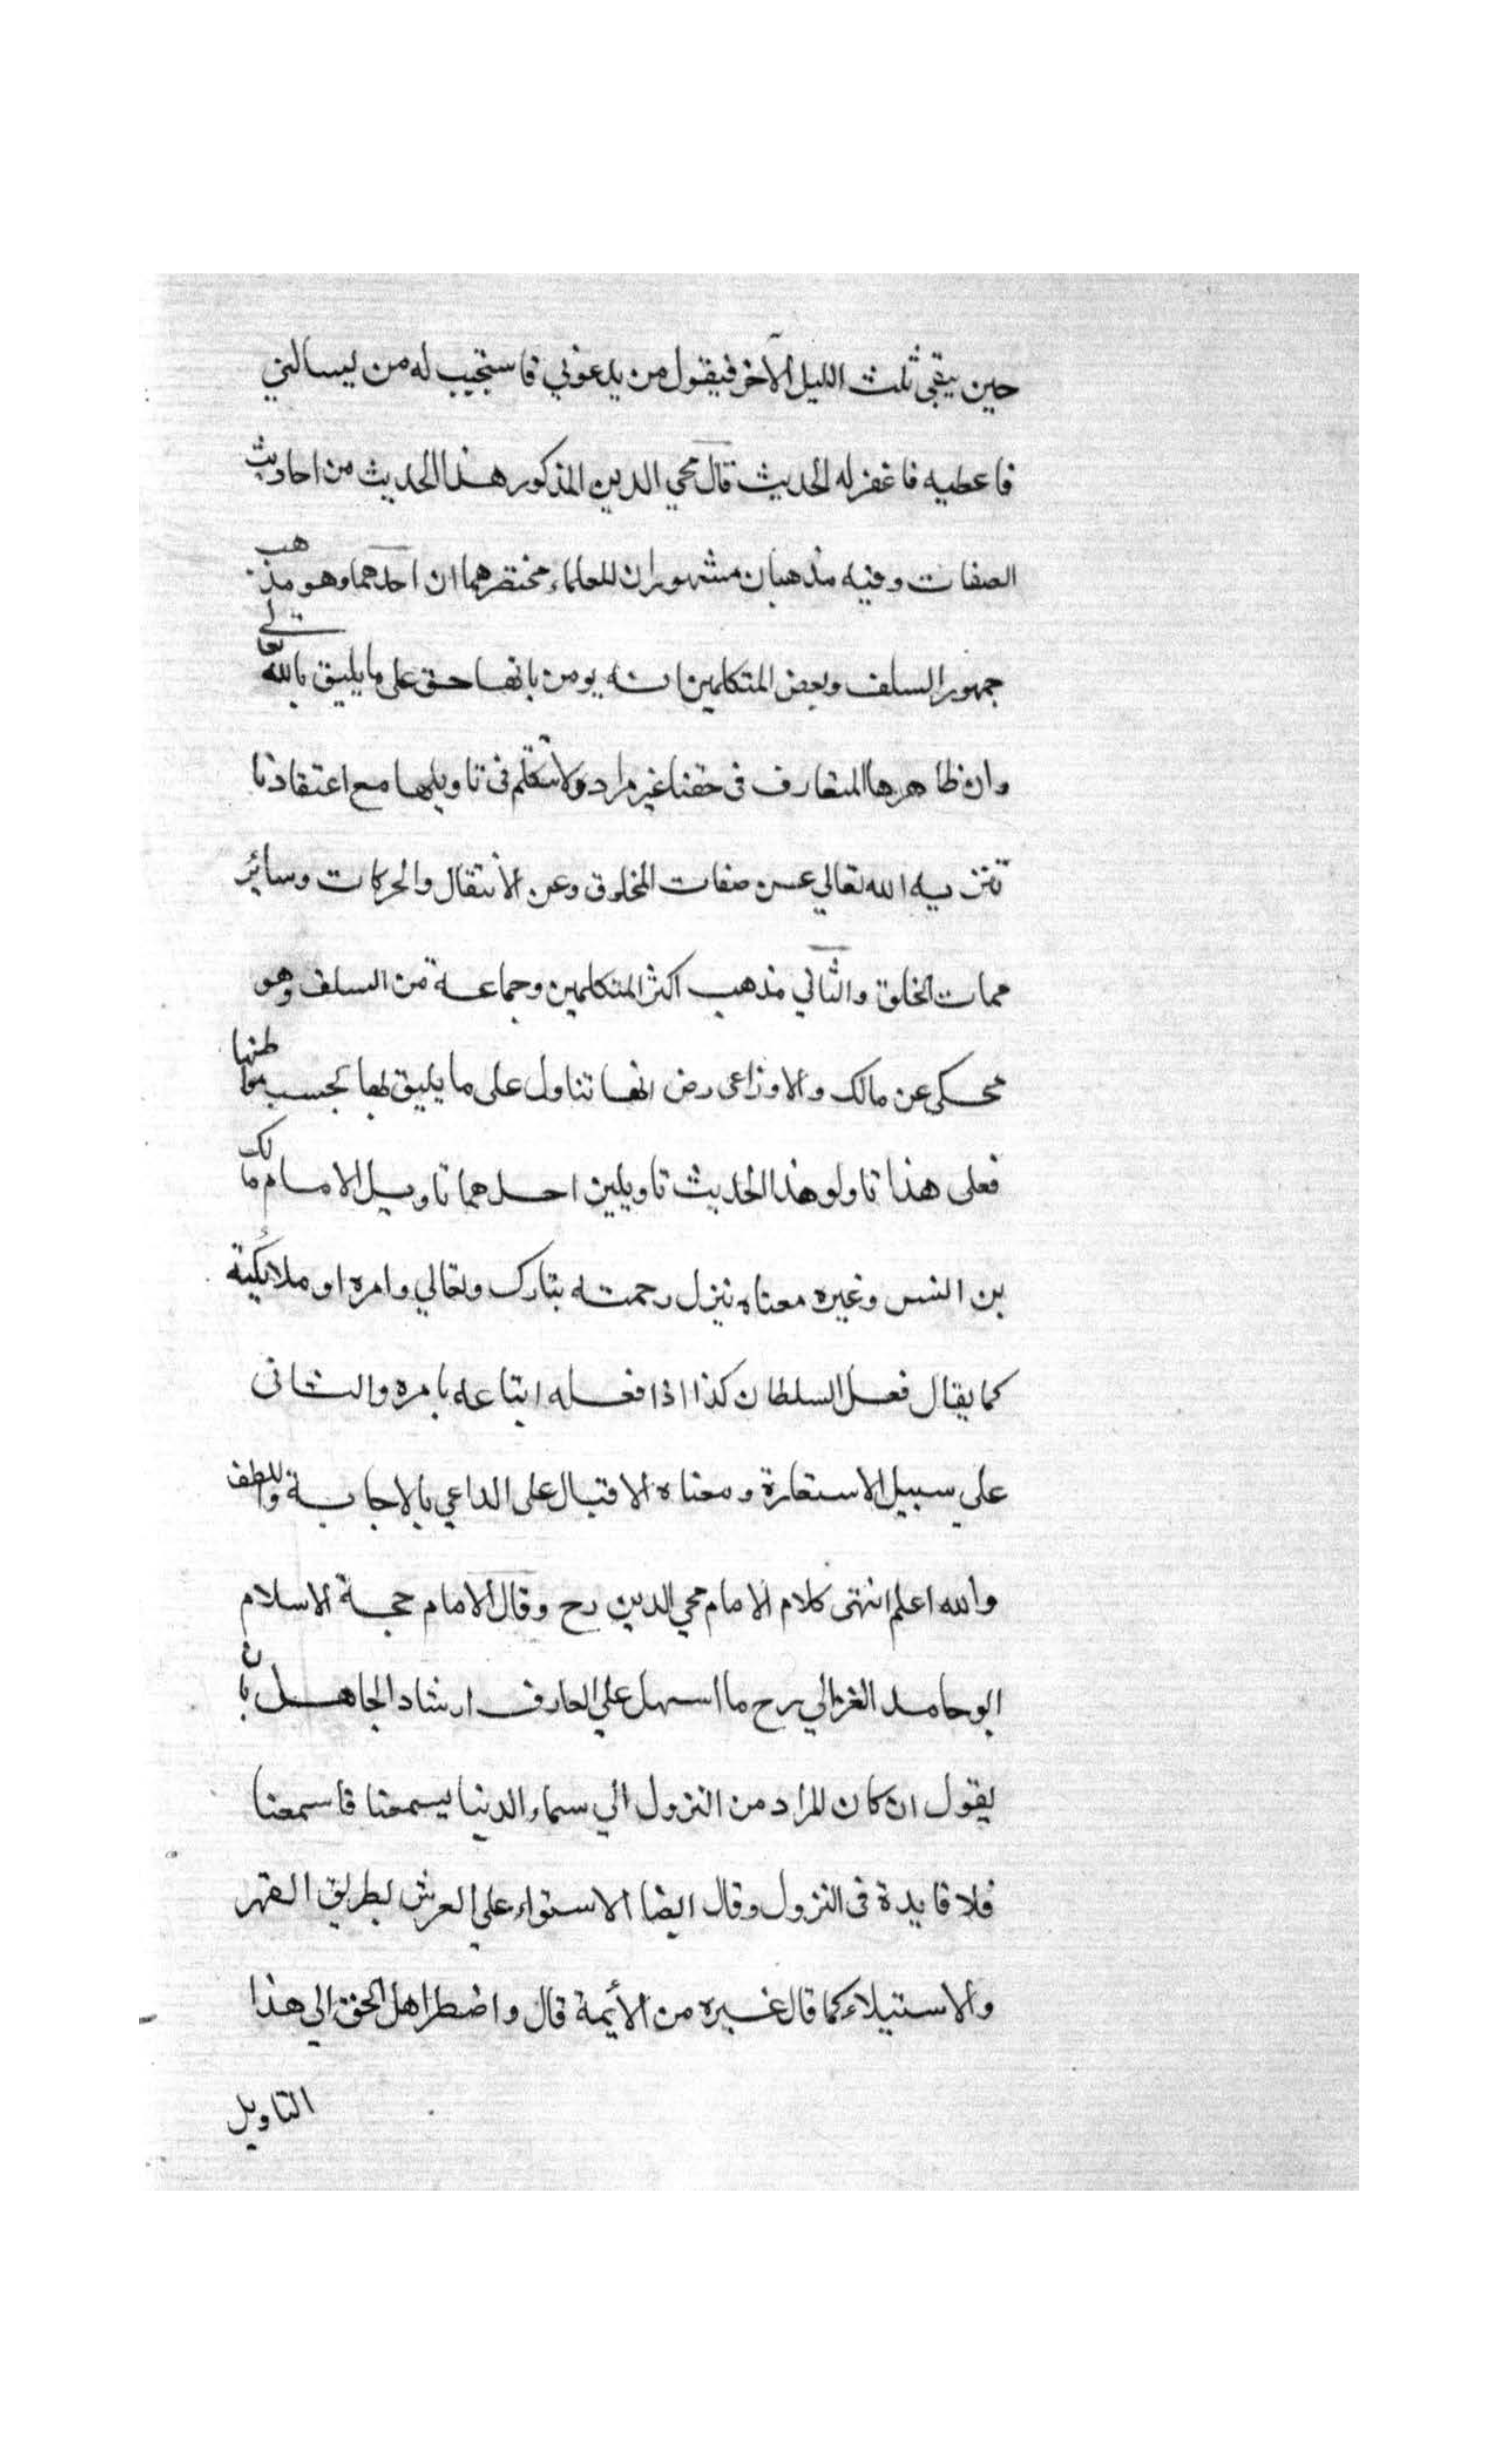 حين يبقى ثلث الليل الآخر فيقول من يدعوني فاستجيب له من يسالني
فاعطيه فاغفر له الحديث قال محي الدين المذكور هذا الحديث من احاديث
الصفات وفيه مذهبان مشهوران للعلماء مختصرهما ان احدهما وهو مذهب
جمهور السلف وبعض المتكلمين انه يومن بانها حق على ما يليق بالله تعالى
وان ظاهرها المتعارف في حقنا غير مراد ولا نتكلم في تاويلها مع اعتقادنا
تنزيه الله تعالي عن صفات المخلوق وعن الانتقال والحركات وسائر
سمات الخلق والثاني مذهب اكثر المتكلمين وجماعة من السلف وهو
محكى عن مالك والاوزاعى رض انها تتاول على ما يليق بها بحسب مواطنها
فعلى هذا تاولو هذا الحديث تاويلين احدهما تاويل الامام مالك
بن انس وغيره معناه ينزل رحمته تبارك وتعالي وامره او ملائكته
كما يقال فعل السلطان كذا اذا فعله اتباعه بامره والثانى
على سبيل الاستعارة ومعناه الاقبال على الداعي بالاجابة واللطف
والله اعلم انتهى كلام الامام محي الدين رح وقال الامام حجة الاسلام
ابو حامد الغزالي رح ما اسهل علي العارف ارشاد الجاهل بان
يقول ان كان المراد من النزول الي سماء الدنيا يسمعنا فاسمعنا
فلا فايدة في النزول وقال ايضا الاستواء علي العرش بطريق القهر
والاستيلاء كما قال غيره من الأيمة قال واضطر اهل الحق الي هذا
التاويل